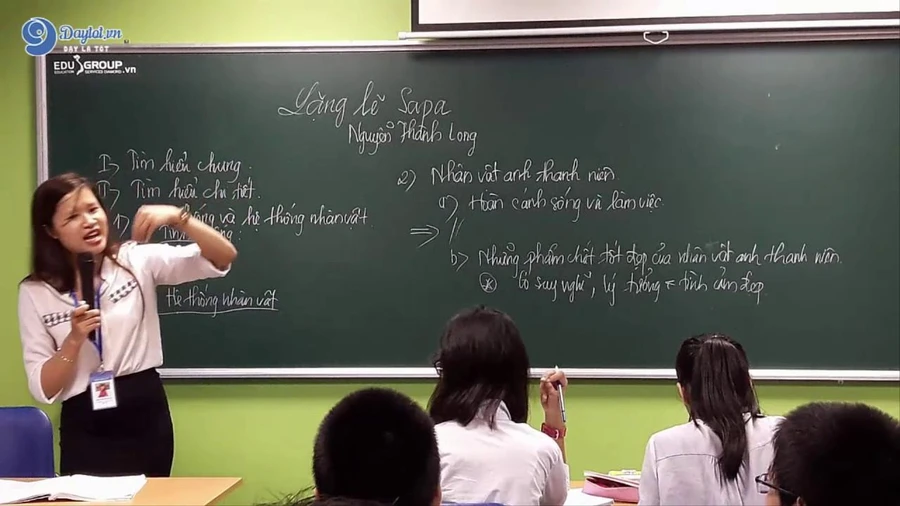 9 Daytot.vn
DẠY LÀ TỐT
EDU GROUP.vn
EDUCATION SERVICES DIAMOND
Lặng lẽ Sapa
Nguyễn Thành Long
I) Tìm hiểu chung.
II) Tìm hiểu chi tiết.
1) thống và hệ thống nhân vật
Tình
Hệ thống nhân vật
2) Nhân vật anh thanh niên.
a) Hoàn cảnh sống và làm việc
⇒ //
b) Những phẩm chất tốt đẹp của nhân vật anh thanh niên.
* Có suy nghĩ, lý tưởng + tình cảm đẹp